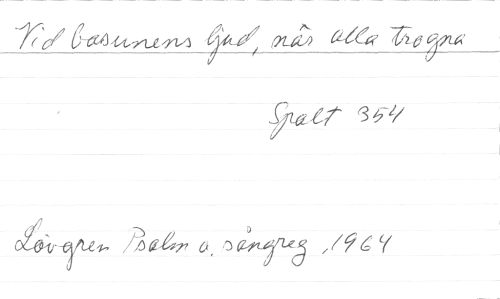 Vid basunens ljud, när alla trogna
Spalt 354
Lövgren Psalm o. sångreg, 1964